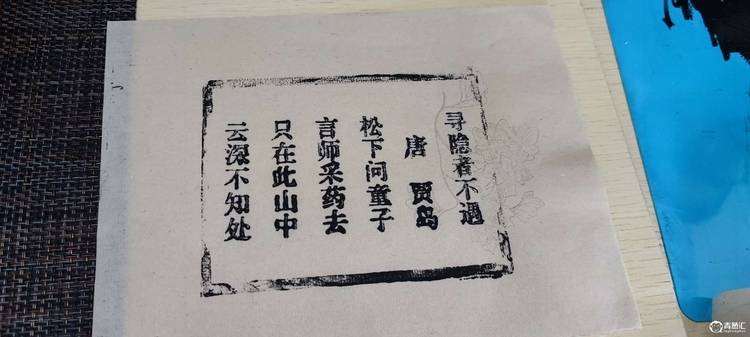 寻隐者不遇
唐 贾岛
松下问童子
言师采药去
只在此山中
云深不知处
青葱汇